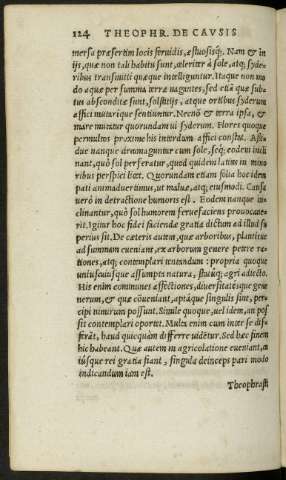 124 THEOPHR. DE CAVSIS
mersa præsertim locis feruidis, æstuosisq;. Nam & in
ijs, quæ non tali habitu sunt, celeriter à sole, atq; syde-
ribus transmitti quæque intelliguntur. Itaque non mo
do aquæ per summa terræ uagantes, sed etiã quæ subter
absconditæ sunt, solstitijs, atque ortibus syderum
affici mutarique sentiuntur. Necnõ & terra ipsa, &
mare mutatur quorundam ui syderum. Flores quoque
permultos proxime his interdum affici constat. Assi-
due nanque circumaguntur cum sole, seq; eodem incli
nant, quò sol perferatur, quod quidem latins in mino
ribus perspici licet. Quorundam etiam folia hoc idem
pati animaduertimus, ut maluæ, atq; eiusmodi. Causa
uerò in detractione humoris est. Eodem nanque in-
clinantur, quò sol humorem feruefaciens prouocaue-
rit. Igitur hoc fidei faciendæ gratia dictum ad illud su
perius sit. De cæteris autem, quæ arboribus, plantisue
ad summam eueniant, ex arborum genere petere ra-
tiones, atq; contemplari tenendum: propria quoque
uniuscuiusque assumpta natura, situq; agri adiecto.
His enim communes affectiones, diuersitatésque gene
nerum, & quæ eõueniant, aptáque singulis sunt, per-
cipi nimirum possunt. Simile quoque, uel idem, an pos
sit contemplari oportet. Multa enim cum inter se dif-
ferãt, haud quicquàm differre uidētur. Sed hæc finem
hic habeant. Quæ autem in agricolatione eueniant, cu
iúsque rei gratia fiant, singula deinceps pari modo
indicandum iam est.
Theophrasti